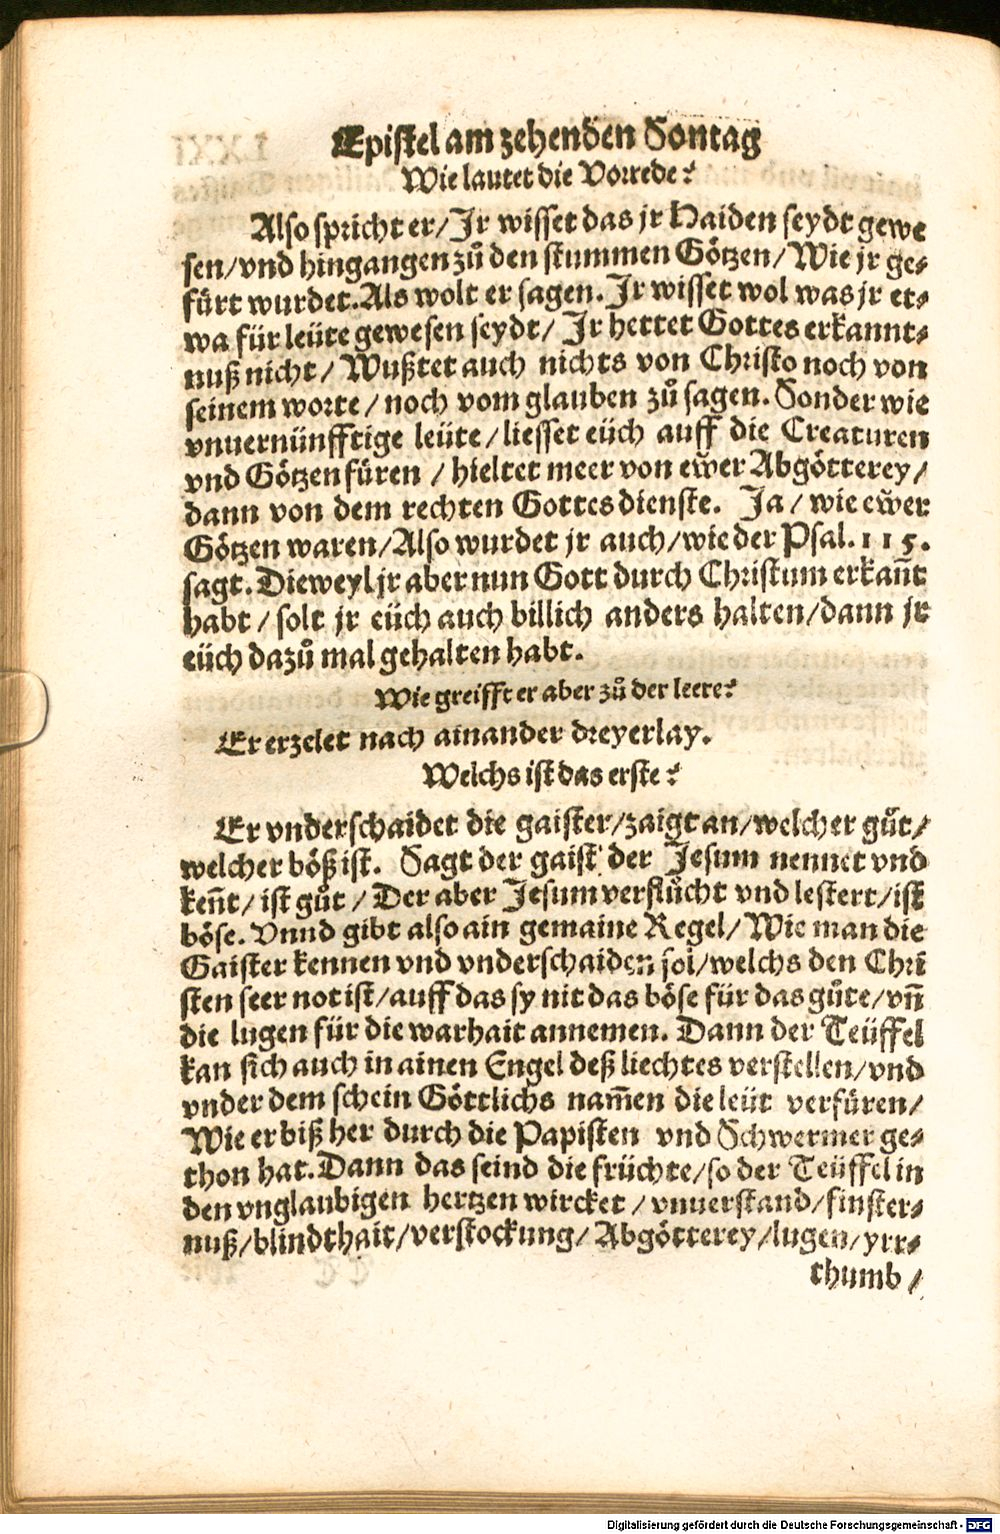 Epistel am zehenden Sontag
Wie lautet die Vorrede?
Also spricht er/Jr wisset das jr Haiden seydt gewe
sen/vnd hingangen zů den stummen Götzen/Wie jr ge-
fürt wurdet. Als wolt er sagen. Jr wisset wol was jr et-
wa für leüte gewesen seydt/ Jr hettet Gottes erkannt-
nuß nicht/ Wußtet auch nichts von Christo noch von
seinem worte/noch vom glauben zů sagen. Sonder wie
vnuernünfftige leüte/liesset eüch auff die Creaturen
vnd Götzen füren /hieltet meer von ew̃er Abgötterey/
dann von dem rechten Gottesdienste. Ja/ wie ew̃er
Götzen waren/Also wurdet jr auch/wie der Psal.115.
sagt. Dieweyl jr aber nun Gott durch Christum erkañt
habt/ solt jr eüch auch billich anders halten/dann jr
eüch dazů mal gehalten habt.
Wie greifft er aber zů der leere?
Er erzelet nach ainander dreyerlay.
Welchs ist das erste?
Er vnderschaidet die gaister/zaigt an/welcher gůt/
welcher böß ist. Sagt der gaist der Jesum nennet vnd
keñt/ist gůt/ Der aber Jesum verflůcht vnd lestert/ist
böse. Vnnd gibt also ain gemaine Regel/ Wie man die
Gaister kennen vnd vnderschaiden sol/welchs den Chri
sten seer not ist/auff das sy nit das böse für das gůte/vñ
die lugen für die warhait annemen. Dann der Teüffel
kan sich auch in ainen Engel deß liechtes verstellen/vnd
vnder dem schein Göttlichs nam̃en die leüt verfüren/
Wie er biß her durch die Papisten vnd Schwermer ge-
thon hat. Dann das seind die früchte/so der Teüffel in
den vnglaubigen hertzen wircket/vnuerstand/finster-
nuß/blindthait/verstockung/Abgötterey/lugen/yrr-
thumb/
Digitalisierung gefördert durch die Deutsche Forschungsgemeinschaft - DFG